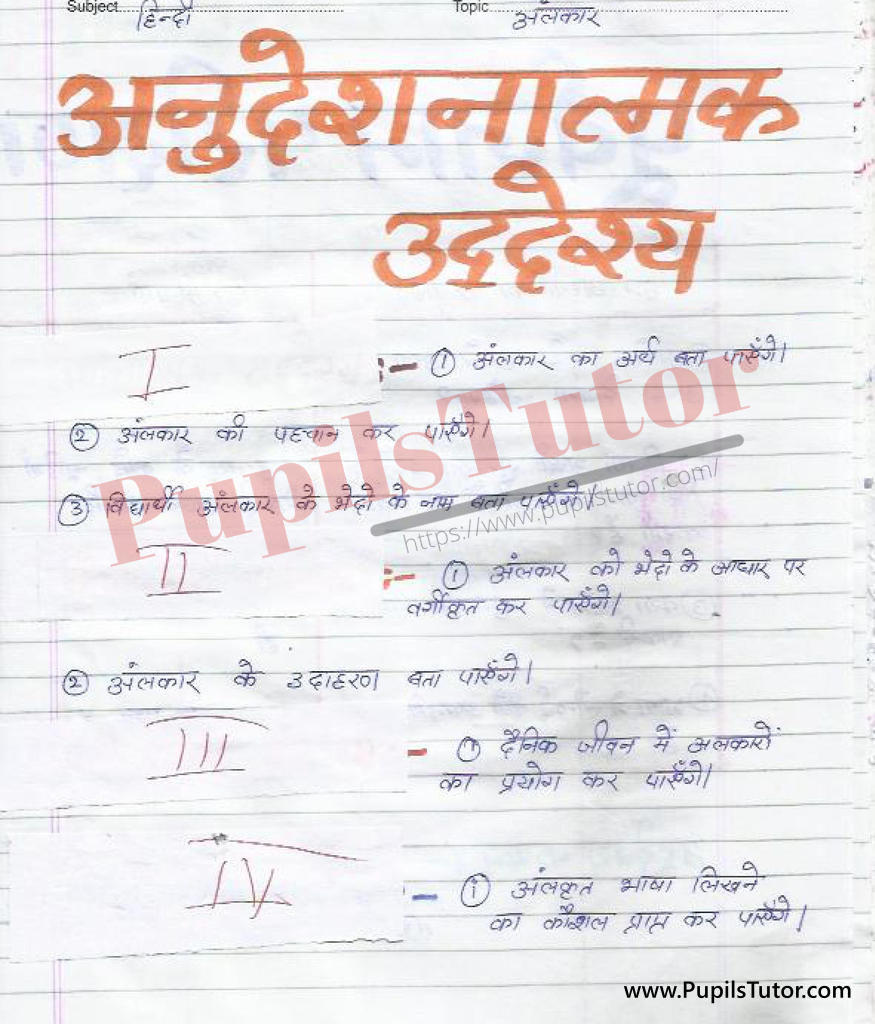 Subject हिन्दी Topic अंलकार
अनुदेशनात्मक
उद्देश्य
I :- ① अंलकार का अर्थ बता पाएँगे।
② अंलकार की पहचान कर पाएँगे।
③ विद्यार्थी अंलकार के भेदो के नाम बता पाएँगे।
II :- ① अंलकार को भेदो के आधार पर
वर्गीकृत कर पाएँगे।
② अंलकार के उदाहरण बता पाएँगे।
III - ① दैनिक जीवन में अलकारों
का प्रयोग कर पाएँगे।
IV - ① अंलकृत भाषा लिखने
का कौशल प्राप्त कर पाएँगे।
PupilsTutor
https://www.pupilstutor.com/
www.PupilsTutor.com